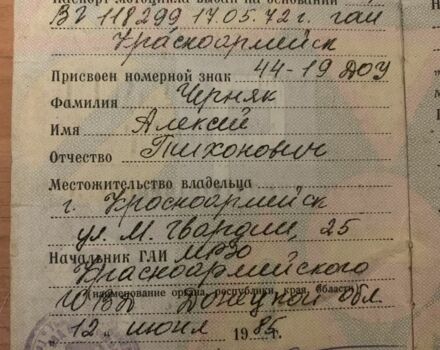 Паспорт мотоцикла выдан на основании
ВГ 118299 17.05.72 г. гаи
Красноармейск
Присвоен номерной знак 44-19 ДОУ
Фамилия Черняк
Имя Алексей
Отчество Тихонович
Местожительство владельца
г. Красноармейск
ул. М. Гвардии, 25
Начальник ГАИ МРЭО
Красноармейского
(наименование органа, республики, края, области)
Донецкой обл
"12" июня 1985 г.